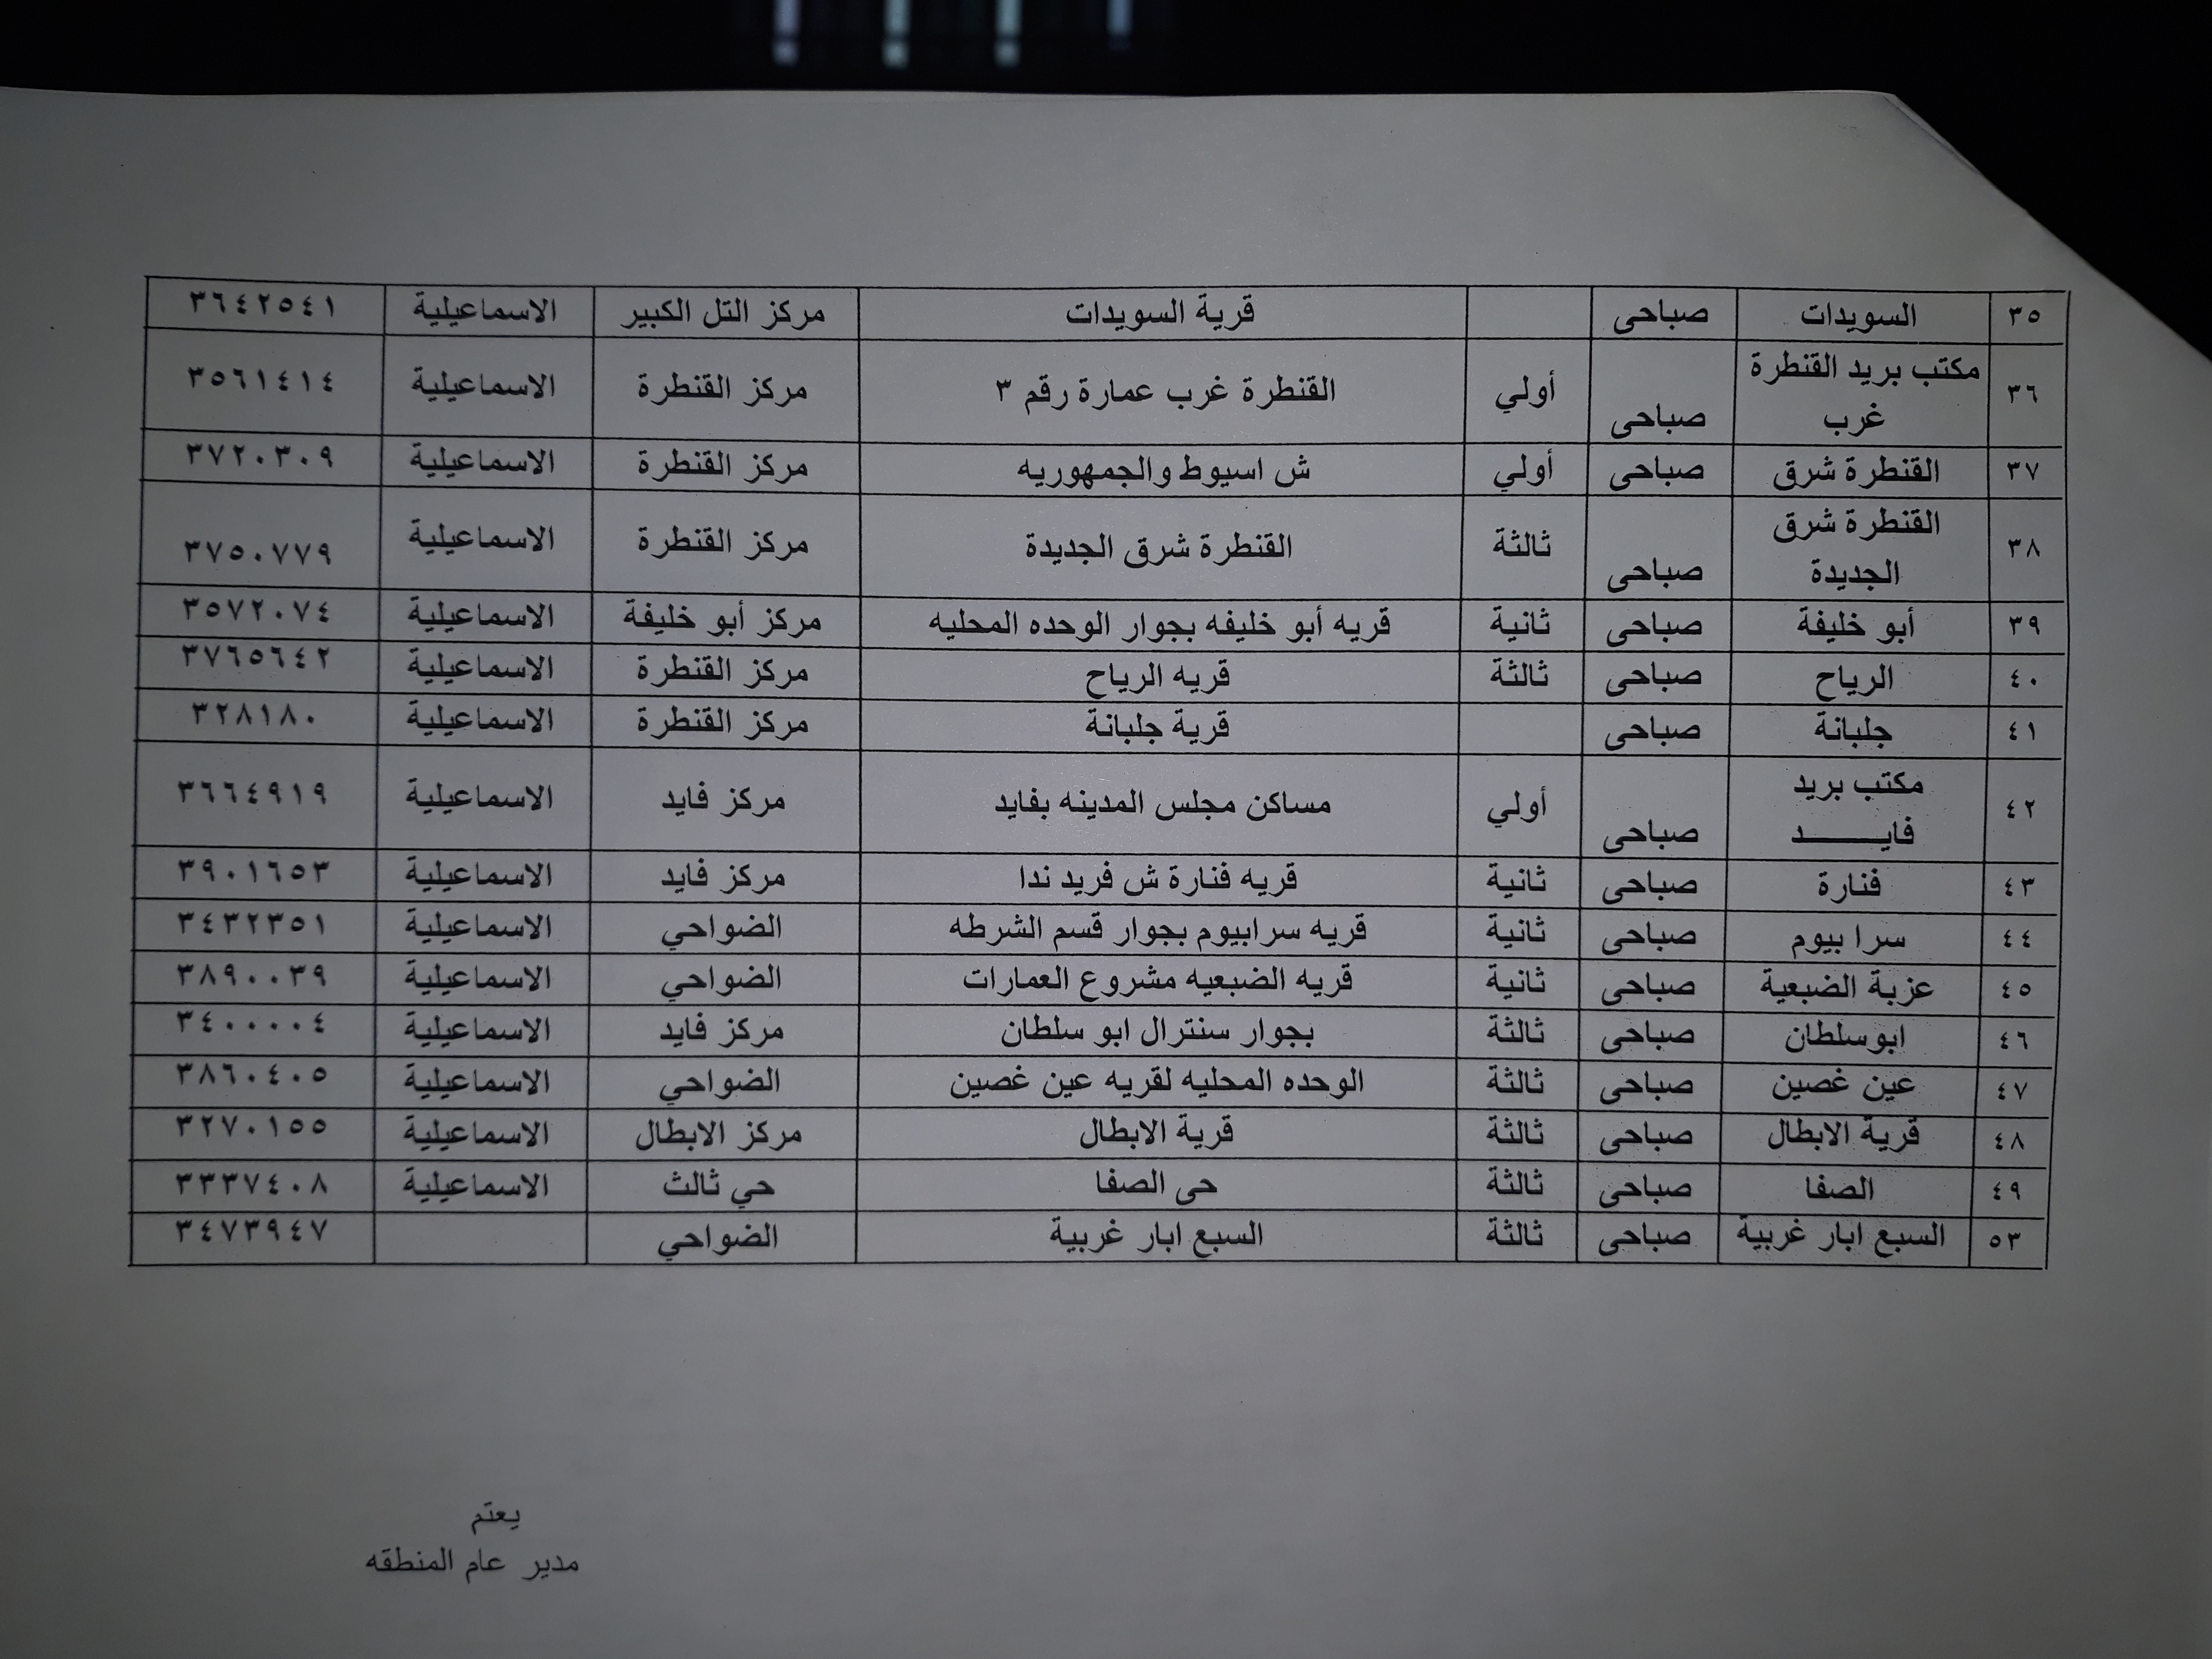 ٣٥ السويدات صباحى قرية السويدات مركز التل الكبير الاسماعيلية ٣٦٤٢٥٤١
٣٦ مكتب بريد القنطرة غرب صباحى أولي القنطرة غرب عمارة رقم ٣ مركز القنطرة الاسماعيلية ٣٥٦١٤١٤
٣٧ القنطرة شرق صباحى أولي ش اسيوط والجمهوريه مركز القنطرة الاسماعيلية ٣٧٢٠٣٠٩
٣٨ القنطرة شرق الجديدة صباحى ثالثة القنطرة شرق الجديدة مركز القنطرة الاسماعيلية ٣٧٥٠٧٧٩
٣٩ أبو خليفة صباحى ثانية قريه أبو خليفه بجوار الوحده المحليه مركز أبو خليفة الاسماعيلية ٣٥٧٢٠٧٤
٤٠ الرياح صباحى ثالثة قريه الرياح مركز القنطرة الاسماعيلية ٣٧٦٥٦٤٢
٤١ جلبانة صباحى قرية جلبانة مركز القنطرة الاسماعيلية ٣٢٨١٨٠
٤٢ مكتب بريد فايـــــــد صباحى أولي مساكن مجلس المدينه بفايد مركز فايد الاسماعيلية ٣٦٦٤٩١٩
٤٣ فنارة صباحى ثانية قريه فنارة ش فريد ندا مركز فايد الاسماعيلية ٣٩٠١٦٥٣
٤٤ سرا بيوم صباحى ثانية قريه سرابيوم بجوار قسم الشرطه الضواحي الاسماعيلية ٣٤٣٢٣٥١
٤٥ عزبة الضبعية صباحى ثانية قريه الضبعيه مشروع العمارات الضواحي الاسماعيلية ٣٨٩٠٠٣٩
٤٦ ابوسلطان صباحى ثالثة بجوار سنترال ابو سلطان مركز فايد الاسماعيلية ٣٤٠٠٠٠٤
٤٧ عين غصين صباحى ثالثة الوحده المحليه لقريه عين غصين الضواحي الاسماعيلية ٣٨٦٠٤٠٥
٤٨ قرية الابطال صباحى ثالثة قرية الابطال مركز الابطال الاسماعيلية ٣٢٧٠١٥٥
٤٩ الصفا صباحى ثالثة حى الصفا حي ثالث الاسماعيلية ٣٣٣٧٤٠٨
٥٣ السبع ابار غربية صباحى ثالثة السبع ابار غربية الضواحي ٣٤٧٣٩٤٧
يعتم
مدير عام المنطقه